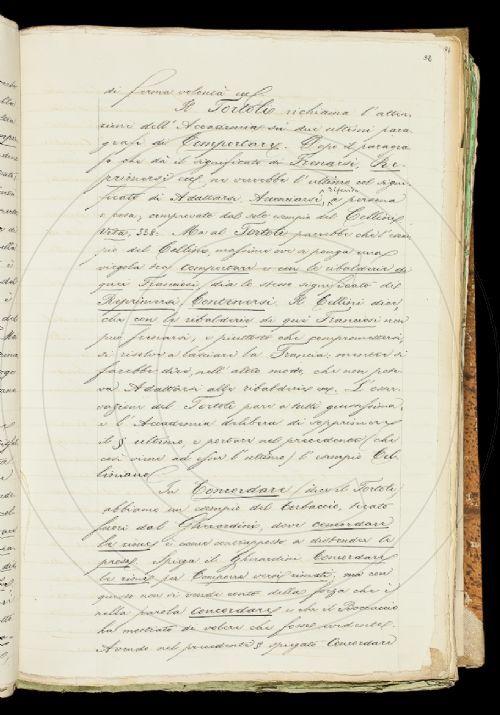 32
di ferma volontà ecc.
Il Tortoli richiama l'atten-
zione dell'Accademia sui due ultimi para-
grafi di Comportare. Dopo il paragra-
fo che dà il significato di Frenarsi, Re-
primersi ecc. ne verrebbe l'ultimo col signi-
ficato di Adattarsi, Avvezzarsi, riferito a persona
o cosa, comprovato dal solo esempio del Cellini
Vita, 338. Ma al Tortoli parrebbe che l'esem-
pio del Cellini, massime ove si ponga una
virgola tra comportare e con le ribalderie di
quei Franciosi, dia lo stesso significato del
Reprimersi, Contenersi. Il Cellini dice,
che con le ribalderie di quei Franciosi non
può frenarsi, e piuttosto che compromettersi
si risolve a lasciare la Francia; mentre si
farebbe dire, nell'altro modo, che non pote-
va Adattarsi alle ribalderie ecc. L'osser-
vazione del Tortoli pare a tutti giustissima,
e l'Accademia delibera di sopprimere
il § ultimo, e portare nel precedente (che
così viene ad esser l'ultimo) l'esempio Cel-
liniano.
In Concordare (dice il Tortoli)
abbiamo un esempio del Corbaccio, tirato
fuori dal Gherardini, dove concordare
le rime è come contrapposto a distendere le
prose. Spiega il Gherardini Concordare
le rime per Comporre versi rimati, ma con
questo non si rende conto della forza che è
nella parola concordare e che il Boccaccio
ha mostrato di volere che fosse evidente.
Avendo nel precedente § spiegato Concordare